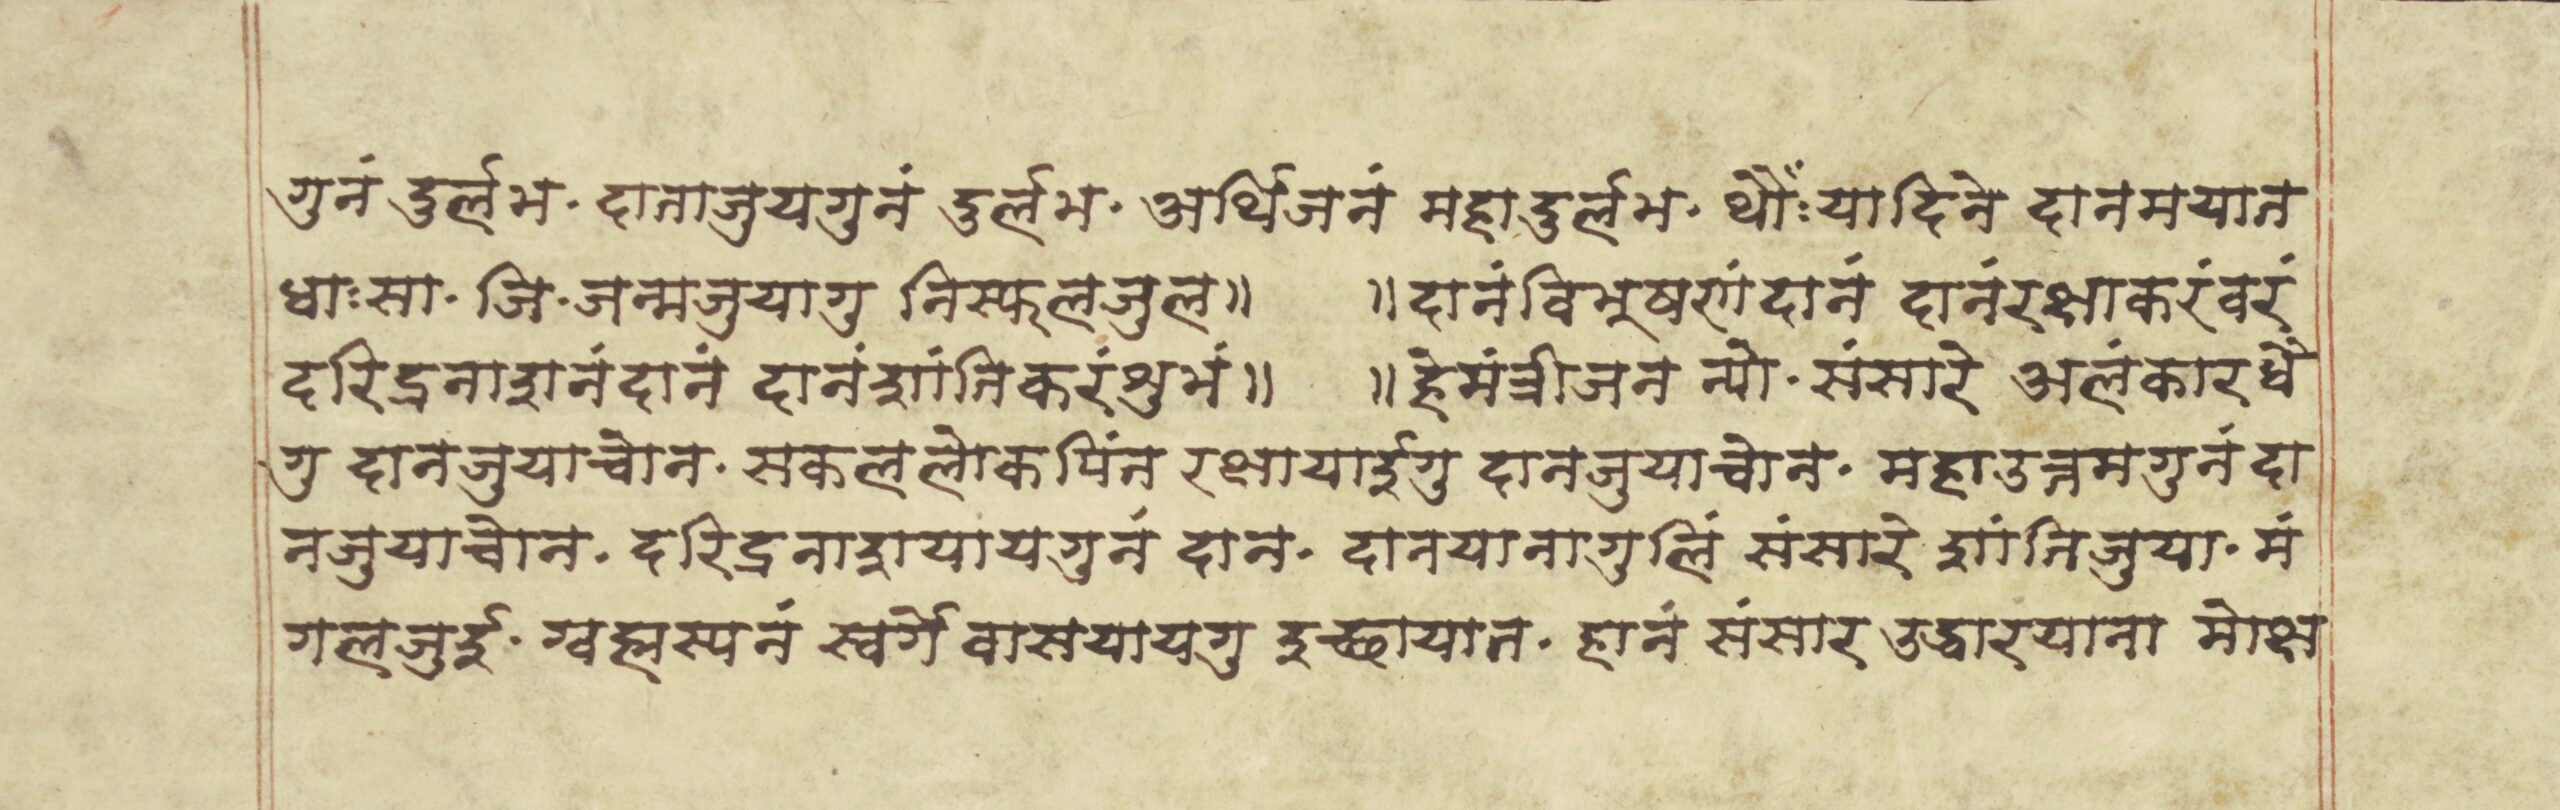 गुनं दुर्लभ. दाताजुयगुनं दुर्लभ. अर्थिजनं महादुर्लभ. थौँःयादिने दानमयात
धाःसा. जि.जन्मजुयागु निस्फलजुल॥ ॥दानंविभूषणंदानं दानंरक्षाकरंवरं
दरिद्रनाशनंदानं दानंशांतिकरंशुभं॥ ॥हेमंत्रीजन प्यो.संसारे अलंकारधैं
गु दानजुयाचोन. सकललोकपिंन रक्षायाईगु दानजुयाचोन. महाउत्तमगुनं दा
नजुयाचोन. दरिद्रनाशयायगुनं दान. दानयानागुलिं संसारे शांतिजुया. मं
गलजुई. ग्वह्मस्यनं स्वर्गे वासयायगु इच्छायात. ह्मनं संसार उद्धारयाना मोक्ष